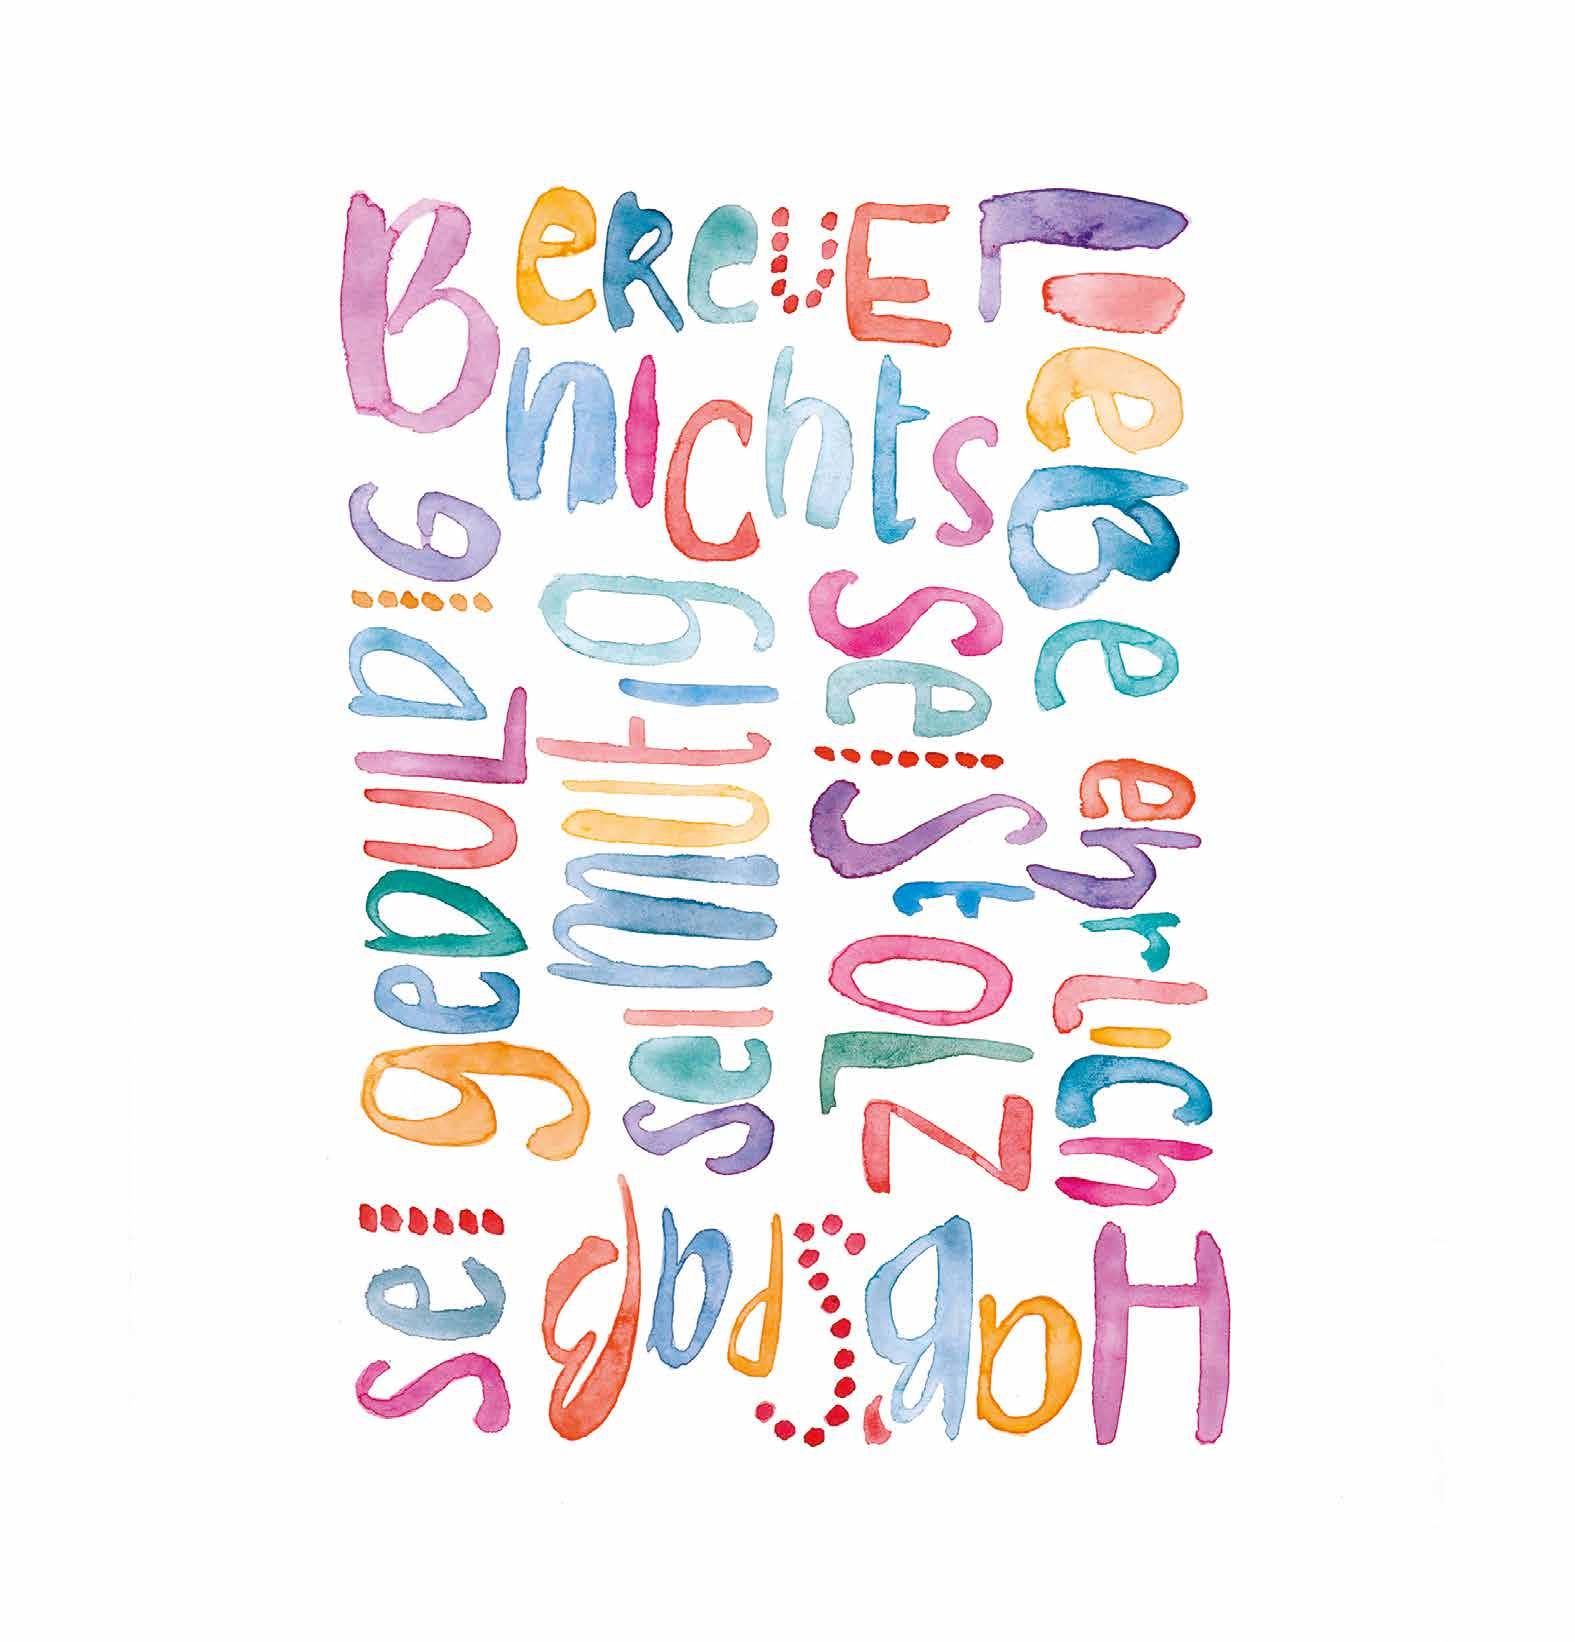 Bereue
nichts
Liebe ehrlich
Hab' Spaß
sei geduldig
sei mutig
sei stolz